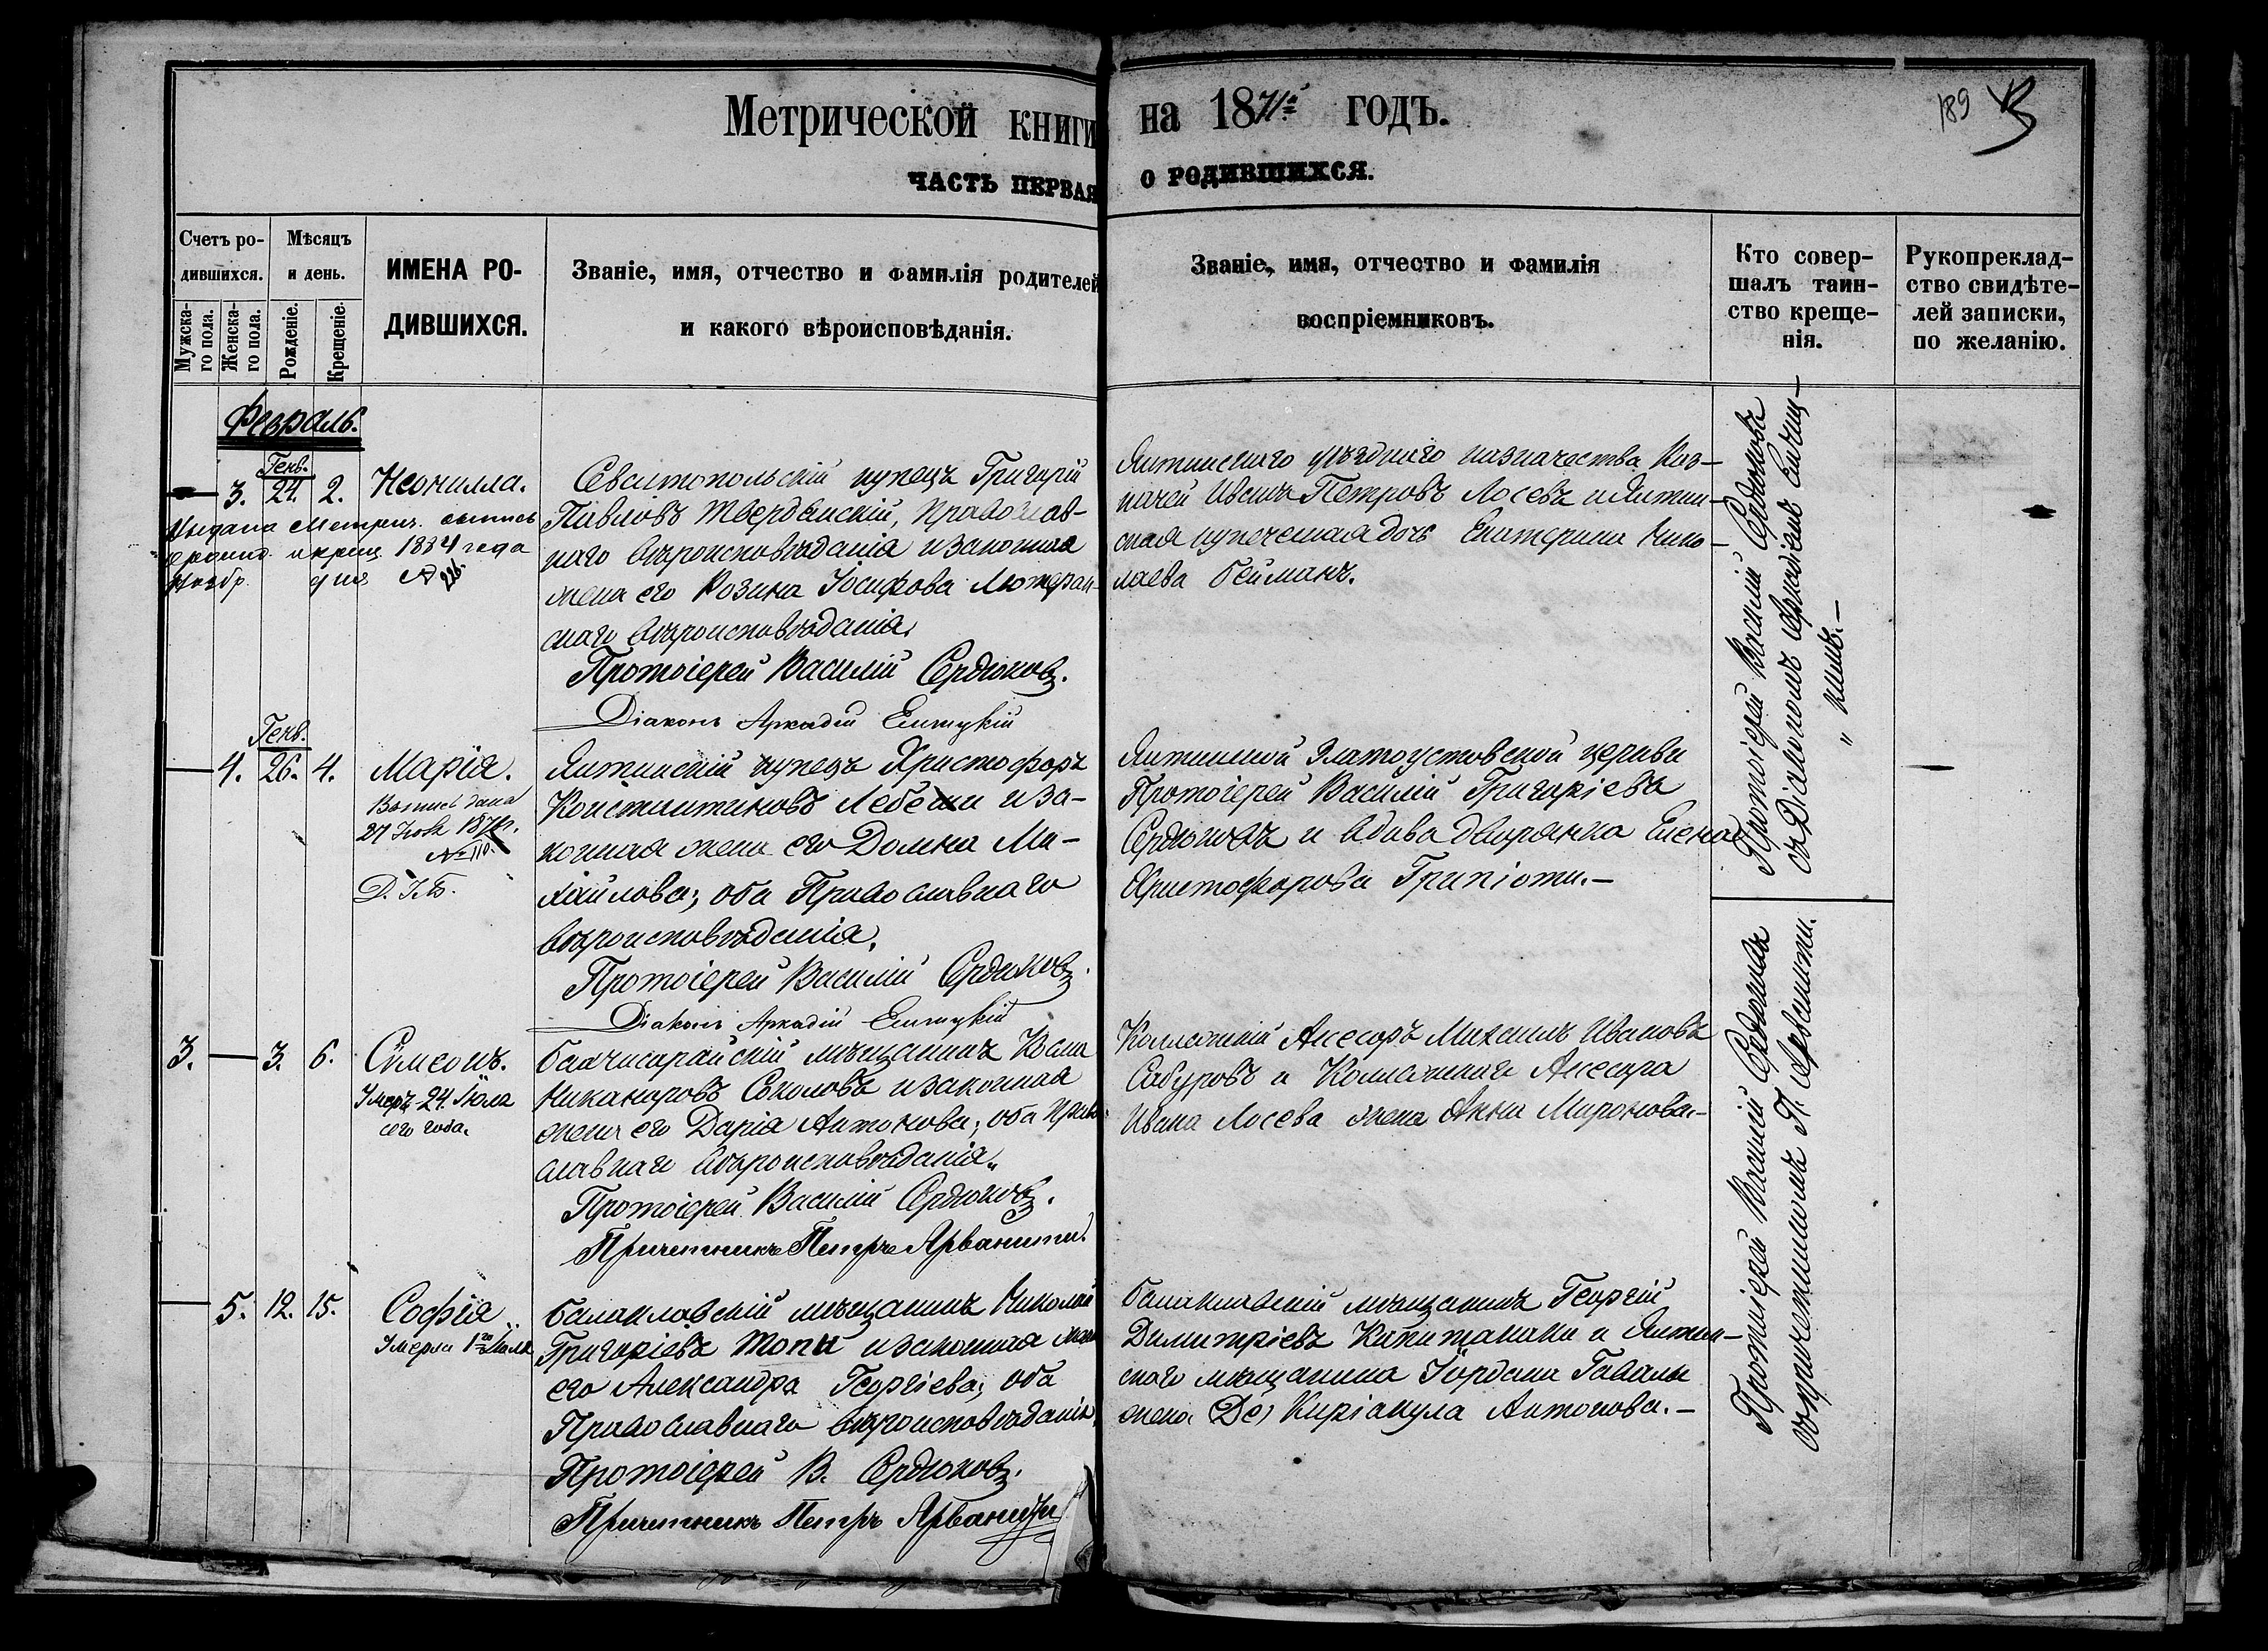 Метрической книги на 1871й годъ.
189
ЧАСТЬ ПЕРВАЯ О РОДИВШИХСЯ.
Счетъ ро-
дившихся.
Мужска-
го пола.
Женска-
го пола.
Мѣсяцъ
и день.
Рожденіе.
Крещеніе.
ИМЕНА РО-
ДИВШИХСЯ.
Званіе, имя, отчество и фамилія родителей
и какого вѣроисповѣданія.
Званіе, имя, отчество и фамилія
воспріемниковъ.
Кто совер-
шалъ таин-
ство креще-
нія.
Рукопреклад-
ство свидѣте-
лей записки,
по желанію.
Февраль.
Генв.
3. 24. 2. Неонилла.
Выдана метрич. выпись
о рожд. и крещ. 1884 года
Ноябр. дня № 226.
Севастопольскій купецъ Григорій
Павловъ Твердянскій, Православ-
наго вѣроисповѣданія и законная
жена его Розина Іосифова Лютеран-
скаго вѣроисповѣданія.
Протоіерей Василій Сердюковъ.
Діаконъ Аркадій
Ялтинскаго уѣзднаго казначества Каз-
начей Иванъ Петровъ Лосевъ и Ялтин-
ская купеческая дочь Екатерина Нико-
лаева Гейманъ.
Протоіерей Василій Сердюковъ
съ Діакономъ Аркадіемъ
Генв.
4. 26. 4. Марія.
Выпись дана
27 Іюля
№ 110.
Ялтинскій купецъ Христофоръ
Константиновъ и за-
конная жена его Домна Ми-
хайлова; оба Православнаго
вѣроисповѣданія.
Протоіерей Василій Сердюковъ.
Діаконъ Аркадій
Ялтинской Златоустовской церкви
Протоіерей Василій Григоріевъ
Сердюковъ и вдова дворянка Елена
Христофорова Грипіоти.
3. 3. 6. Симеонъ.
Умеръ 24. Іюля
сего года.
Бахчисарайскій мѣщанинъ Косма
Никаноровъ Соколовъ и законная
жена его Дарія Антонова; оба Право-
славнаго вѣроисповѣданія.
Протоіерей Василій Сердюковъ.
Причетникъ Петръ Арванити.
Коллежскій Ассесоръ Михаилъ Ивановъ
Сабуровъ и Коллежскаго Ассесора
Ивана Лосева жена Анна Миронова.
Протоіерей Василій Сердюковъ
съ причетникомъ П. Арванити.
5. 12. 15. София
Умерла
Балаклавскій мѣщанинъ Николай
Григоріевъ Топи и законная жена
его Александра Георгіева; оба
Православнаго вѣроисповѣданія.
Протоіерей В. Сердюковъ.
Причетникъ Петръ Арванити
Балаклавскій мѣщанинъ Георгій
Димитріевъ Капитанаки и Ялтин-
скаго мѣщанина Іордана Гавалы
жена Киріакула Антонова.